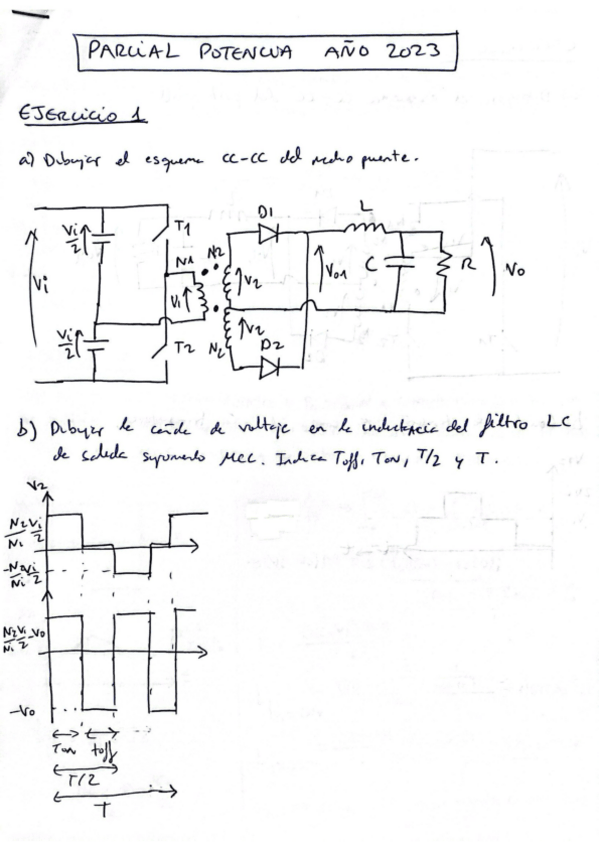 PARCIAL POTENCIA AÑO 2023
EJERCICIO 1
a) Dibujar el esquema CC-CC del medio puente.
Vi
Vi/2
Vi/2
T1
T2
N1
N2
V1
V2
V2
N2
D1
D2
V01
L
C
R
Vo
b) Dibujar la caída de voltaje en la inductancia del filtro LC
de salida suponiendo MCC. Indica Toff, Ton, T/2 y T.
V2
N2/N1 Vi/2
-N2/N1 Vi/2
N2/N1 Vi/2 -Vo
-Vo
Ton toff
T/2
T